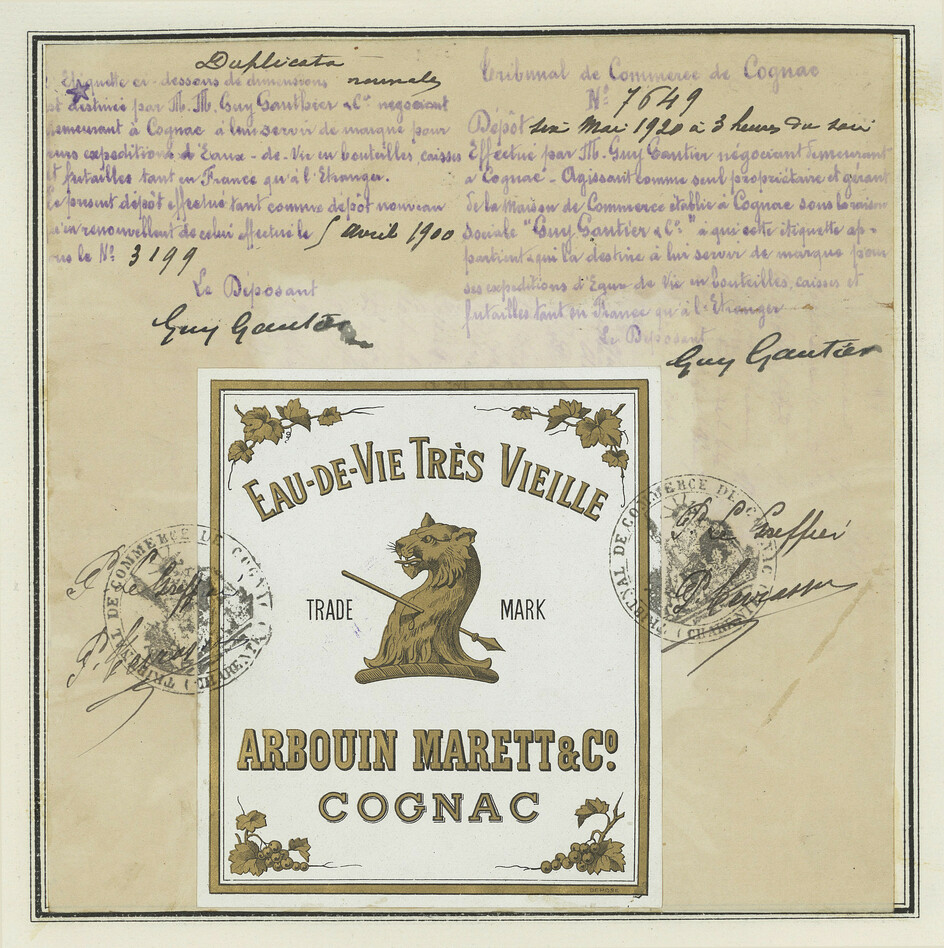 Duplicata
Etiquette ci-dessous de dimensions normales
est destinée par M. M. Guy Gauthier & Cie négociant
demeurant à Cognac à lui servir de marque pour
leurs expeditions d'Eaux-de-Vie en bouteilles, caisses
et futailles tant en France qu'à l'Etranger.
Le présent dépôt effectué tant comme dépôt nouveau
qu'en renouvellant de celui effectué le 5 avril 1900
sous le No 3199
Le Déposant
Guy Gautier
Tribunal de Commerce de Cognac
No 7649
Dépôt six Mai 1920 à 3 heures du soir
Effectué par M. Guy Gautier négociant demeurant
à Cognac - Agissant comme seul propriétaire et gérant
de la Maison de Commerce établie à Cognac sous la raison
sociale "Guy Gautier & Co" à qui cette étiquette ap-
partient & qui la destine à lui servir de marque pour
ses expeditions d'Eaux-de-Vie en bouteilles, caisses et
futailles tant en France qu'à l'Etranger
Le Déposant
Guy Gautier
EAU-DE-VIE TRÈS VIEILLE
TRADE MARK
ARBOUIN MARETT & Co.
COGNAC
P. Le Greffier
TRIBUNAL DE COMMERCE DE COGNAC (CHARENTE)
P. Le Greffier
TRIBUNAL DE COMMERCE DE COGNAC (CHARENTE)